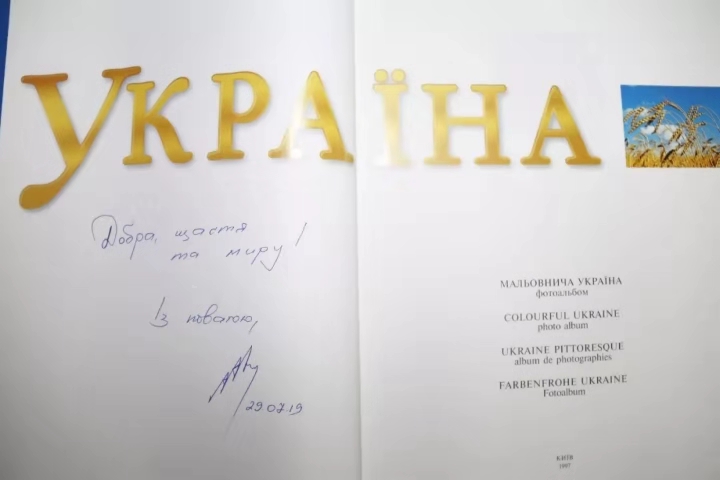 УКРАЇНА
Добра, щастя
та миру!
Із повагою,
29.07.19
МАЛЬОВНИЧА УКРАЇНА
фотоальбом
COLOURFUL UKRAINE
photo album
UKRAINE PITTORESQUE
album de photographies
FARBENFROHE UKRAINE
Fotoalbum
КИЇВ
1997